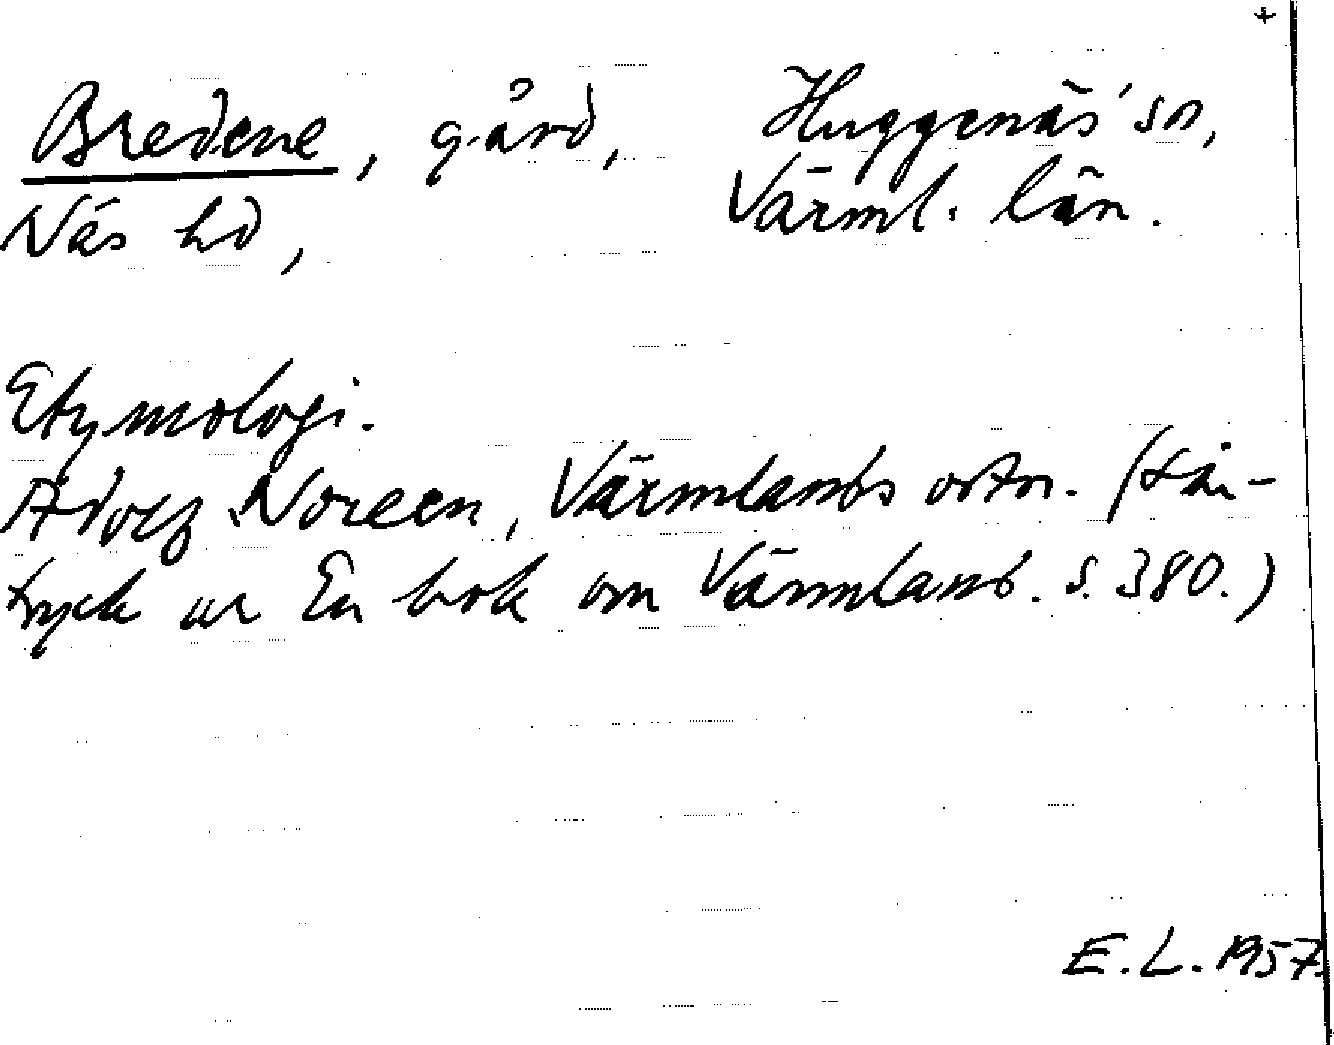 +
Bredene, gård, Huggenäs' sn,
Näs hd, Värml. län.
Etymologi.
Adolf Noreen, Värmlands ortn. (Sär-
tryck ur En bok om Värmland. S. 380.)
E.L. 1957.